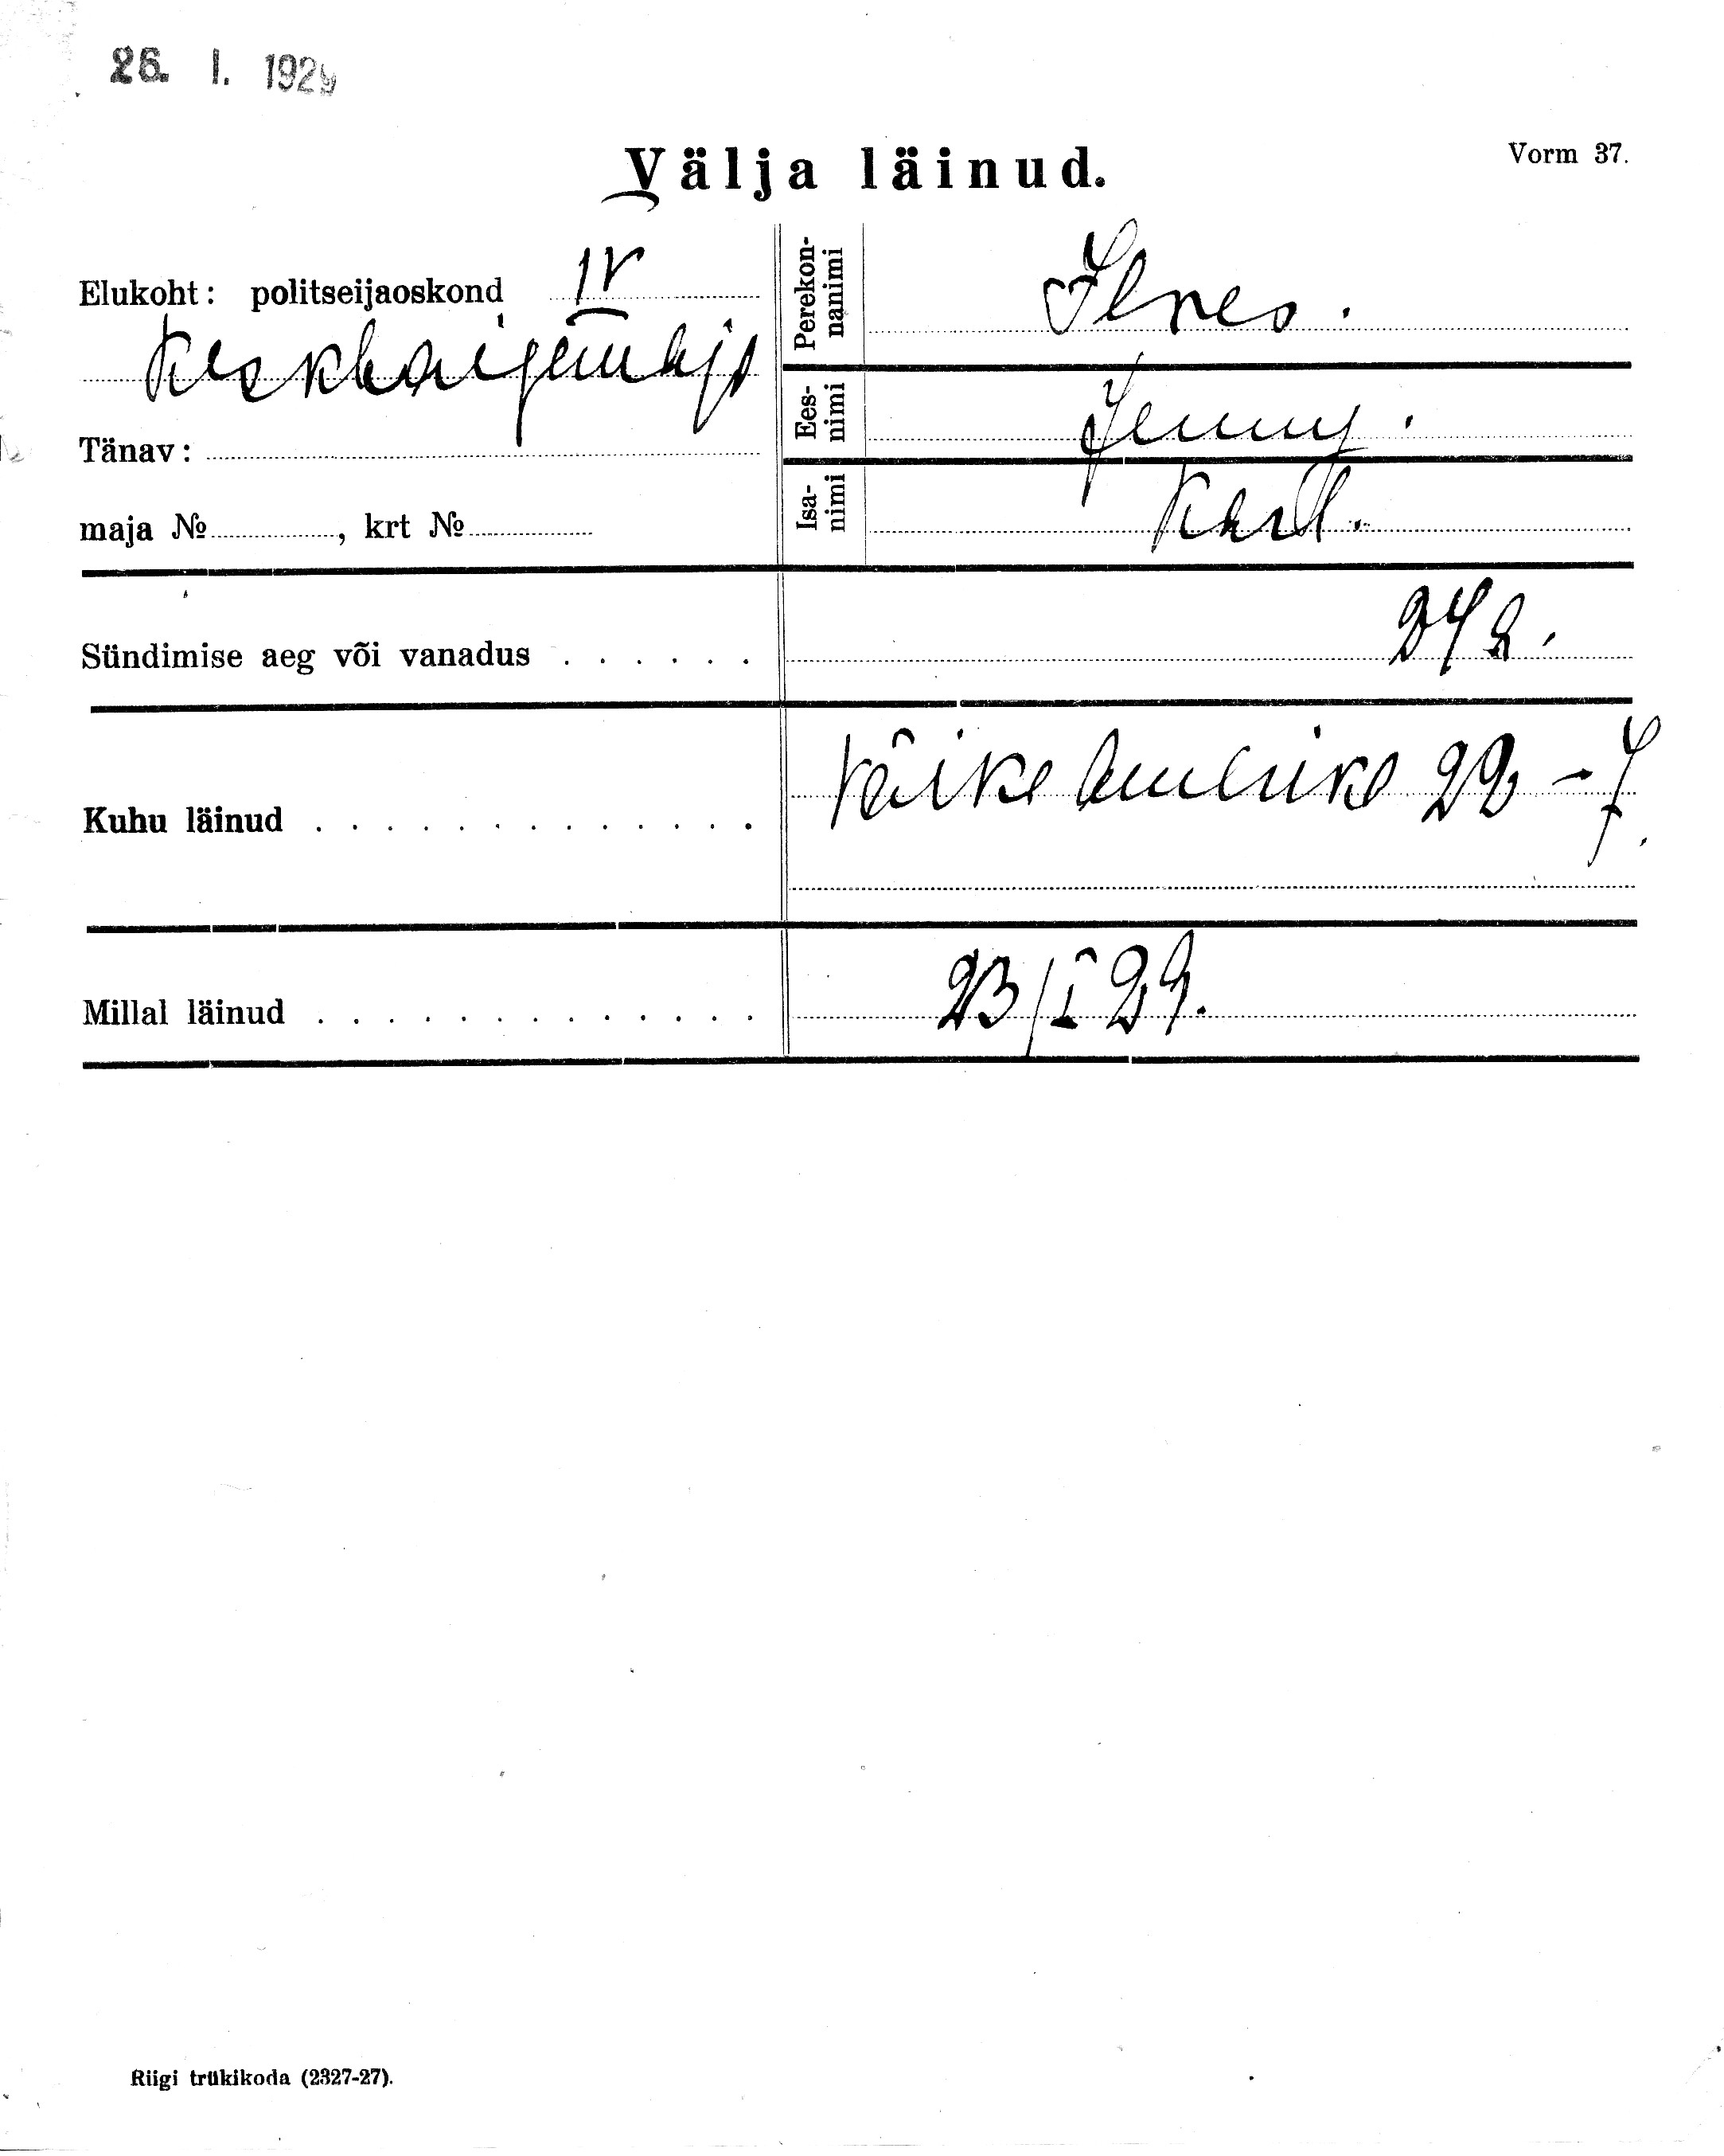 26. I. 1929
Vorm 37.
Välja läinud.
Elukoht: politseijaoskond IV
Keskhaigemaja
Tänav:
maja №, krt №
Perekon-
nanimi
Ees-
nimi Jenny.
Isa-
nimi Karl.
Sündimise aeg või vanadus . . . . . . 24 a.
Kuhu läinud . . . . . . . . . . . . . Väike Ameerika 22 - 7.
Millal läinud . . . . . . . . . . . . . 23/I 29.
Riigi trükikoda (2327-27).